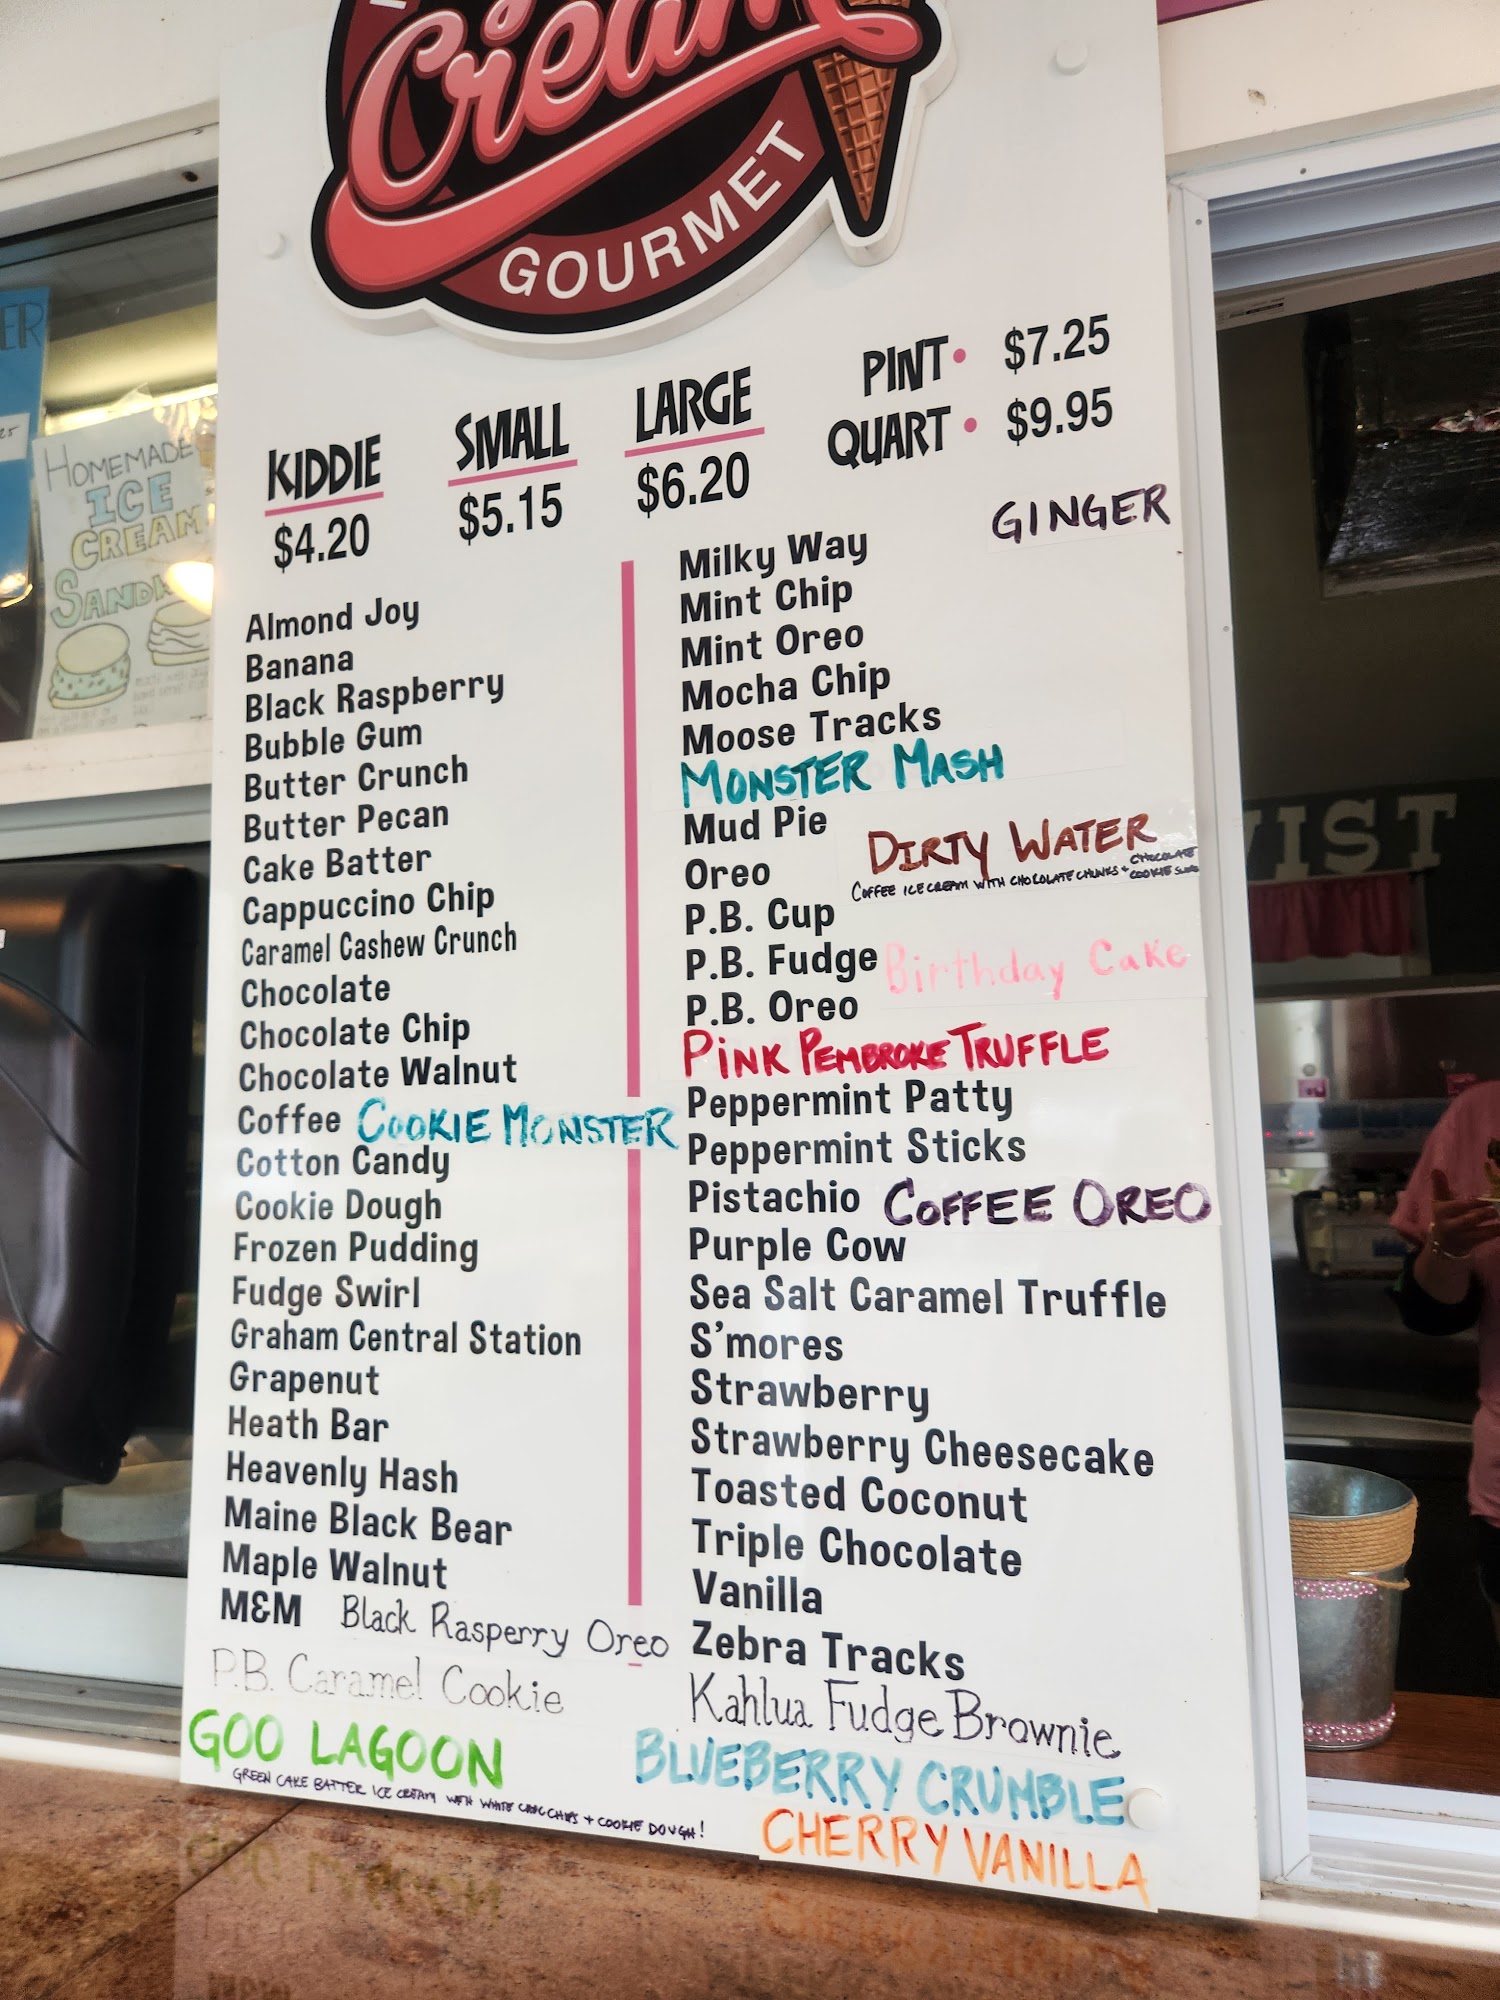 Cream
GOURMET
KIDDIE
$4.20
SMALL
$5.15
LARGE
$6.20
PINT • $7.25
QUART • $9.95
GINGER
Almond Joy
Banana
Black Raspberry
Bubble Gum
Butter Crunch
Butter Pecan
Cake Batter
Cappuccino Chip
Caramel Cashew Crunch
Chocolate
Chocolate Chip
Chocolate Walnut
Coffee COOKIE MONSTER
Cotton Candy
Cookie Dough
Frozen Pudding
Fudge Swirl
Graham Central Station
Grapenut
Heath Bar
Heavenly Hash
Maine Black Bear
Maple Walnut
M&M Black Rasperry Oreo
P.B. Caramel Cookie
GOO LAGOON
GREEN CAKE BATTER ICE CREAM WITH WHITE CHOC CHIPS + COOKIE DOUGH!
Milky Way
Mint Chip
Mint Oreo
Mocha Chip
Moose Tracks
MONSTER MASH
Mud Pie
DIRTY WATER
COFFEE ICE CREAM WITH CHOCOLATE CHUNKS + CHOCOLATE
COOKIE
Oreo
P.B. Cup
P.B. Fudge Birthday Cake
P.B. Oreo
PINK PEMBROKE TRUFFLE
Peppermint Patty
Peppermint Sticks
Pistachio COFFEE OREO
Purple Cow
Sea Salt Caramel Truffle
S'mores
Strawberry
Strawberry Cheesecake
Toasted Coconut
Triple Chocolate
Vanilla
Zebra Tracks
Kahlua Fudge Brownie
BLUEBERRY CRUMBLE
CHERRY VANILLA
HOMEMADE
ICE
CREAM
ER
IST